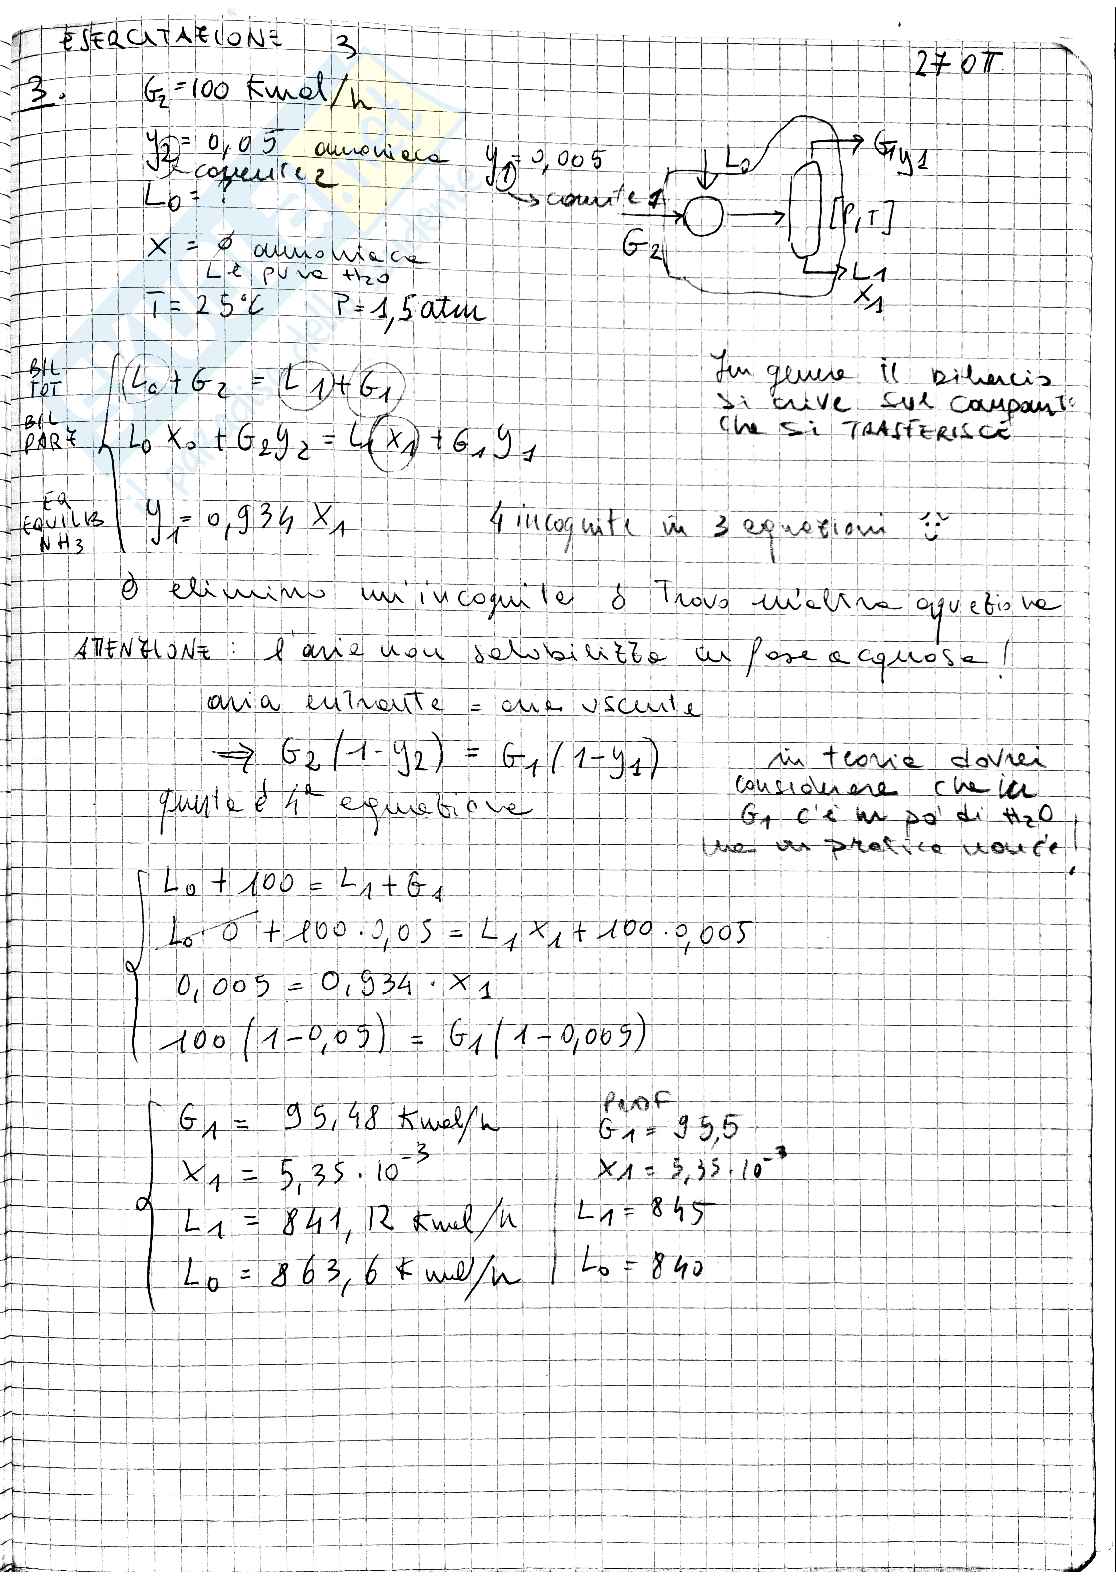 ESERCITAZIONE 3
27 OTT
3. G2 = 100 Kmol/h
y2 = 0,05 ammoniaca
corrente 2
y1 = 0,005
corrente 1
L0 = ?
X = ϕ ammoniaca
L è pura H2O
T = 25°C P = 1,5 atm
L0
G1 y1
G2
[P,T]
L1
X1
BIL TOT L0 + G2 = L1 + G1
BIL PARZ L0 X0 + G2 y2 = L1 X1 + G1 y1
EQ EQUILIB NH3 y1 = 0,934 X1
In genere il bilancio
si scrive sul component.
che si TRASFERISCE
4 incognite in 3 equazioni
o elimino un'incognita o Trovo un'altra equazione
ATTENZIONE: l'aria non solubilizza in fase acquosa!
aria entrante = aria uscente
⇒ G2 (1-y2) = G1 (1-y1)
questa è 4ª equazione
in teoria dovrei
considerare che in
G1 c'è un po' di H2O
ma in pratica non c'è!
L0 + 100 = L1 + G1
L0·0 + 100·0,05 = L1 X1 + 100·0,005
0,005 = 0,934 · X1
100 (1-0,05) = G1 (1-0,005)
G1 = 95,48 Kmol/h
X1 = 5,35·10⁻³
L1 = 841,12 Kmol/h
L0 = 863,6 Kmol/h
PROF
G1 = 95,5
X1 = 5,35·10⁻³
L1 = 845
L0 = 840